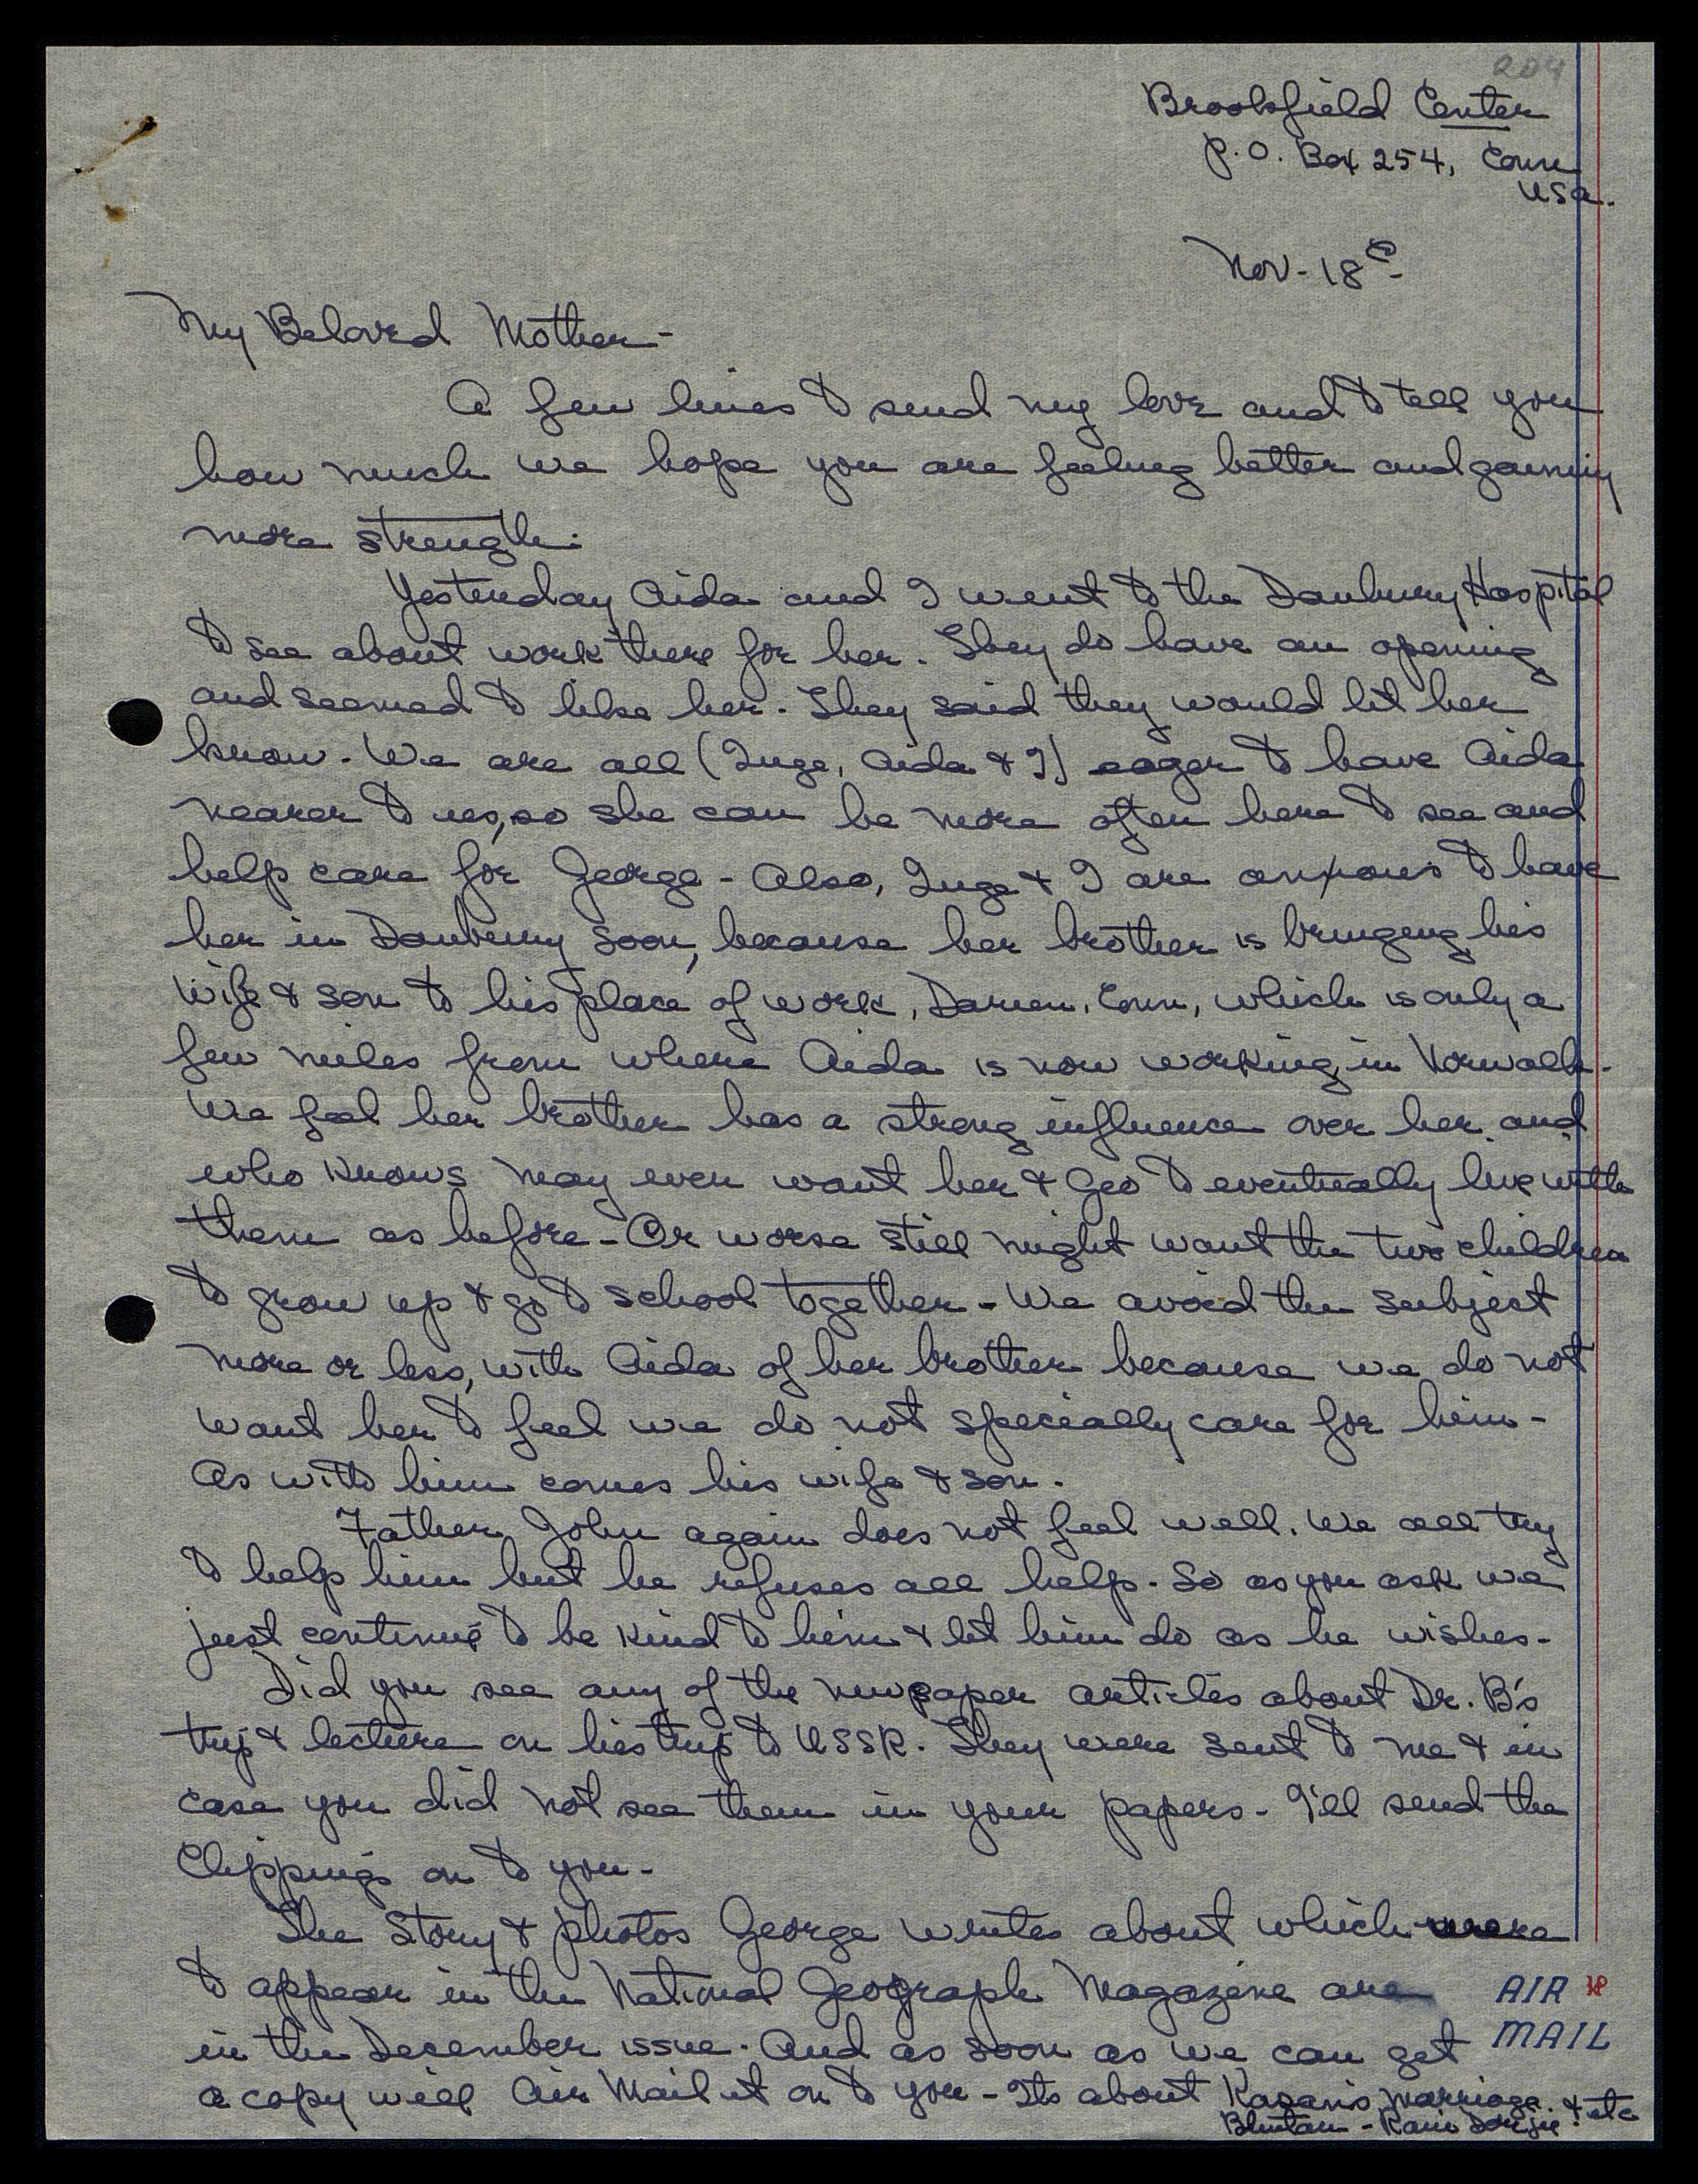 204
Brookfield Center
P.O. Box 254, Conn
USA.
Nov - 18
My Beloved Mother -
A few lines to send my love and to tell you
how much we hope you are feeling better and gaining
more strength.
Yesterday Aida and I went to the Danbury Hospital
to see about work there for her. They do have an opening
and seemed to like her. They said they would let her
know. We are all (Inge, Aida & I) eager to have Aida
nearer to us, so she can be more often here to see and
help care for George - Also, Inge & I are anxious to have
her in Danbury soon, because her brother is bringing his
wife & son to his place of work, Darien, Conn, which is only a
few miles from where Aida is now working, in Norwalk.
We feel her brother has a strong influence over her, and
who knows may even want her & Geo to eventually live with
them as before - Or worse still might want the two children
to grow up & go to school together - We avoid the subject
more or less, with Aida of her brother because we do not
want her to feel we do not specially care for him -
As with him comes his wife & son.
Father John again does not feel well. We all try
to help him but he refuses all help. So as you ask we
just continue to be kind to him & let him do as he wishes -
Did you see any of the newspaper articles about Dr. B's
trip & lecture on his trip to USSR. They were sent to me & in
case you did not see them in your papers - I'll send the
Clippings on to you -
The Story & photos George writes about which were
to appear in the National Geograph Magazine are
in the December issue. And as soon as we can get
a copy will Air Mail it on to you - Its about Kazani's marriage. & etc
Bhutan - Rani Dorjee!
AIR
MAIL